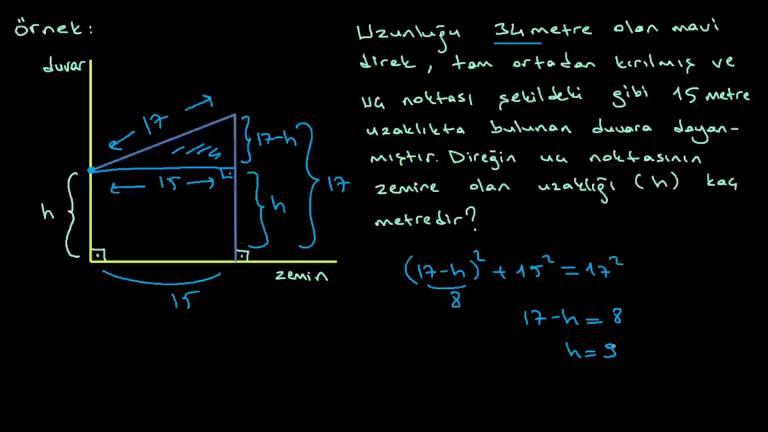 Örnek:
duvar
17
15
h
17-h
h
17
15
zemin
Uzunluğu 34 metre olan mavi
direk, tam ortadan kırılmış ve
uç noktası şekildeki gibi 15 metre
uzaklıkta bulunan duvara dayan-
mıştır. Direğin uç noktasının
zemine olan uzaklığı (h) kaç
metredir?
(17-h)² + 15² = 17²
8
17-h = 8
h = 9